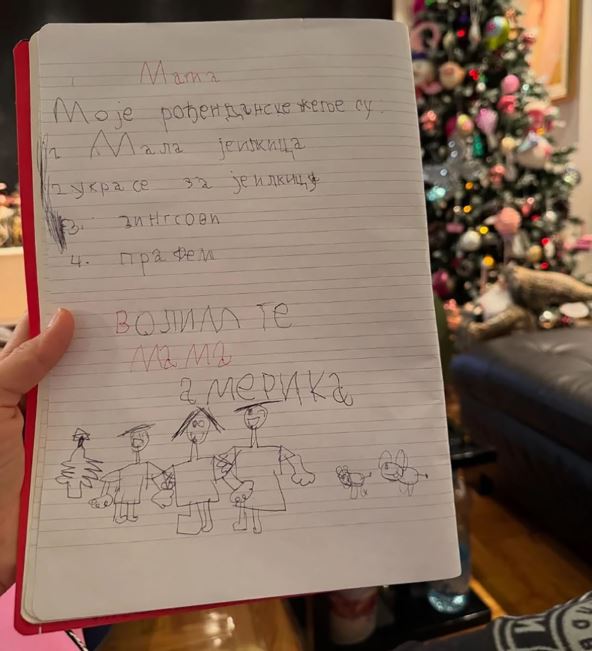 Мата
Моје рођенданске жеље су:
1 Мала јелкица
2 украсе за јелкицу
3. зингсови
4. прафем
ВОЛИМ ТЕ
МАМА
америка